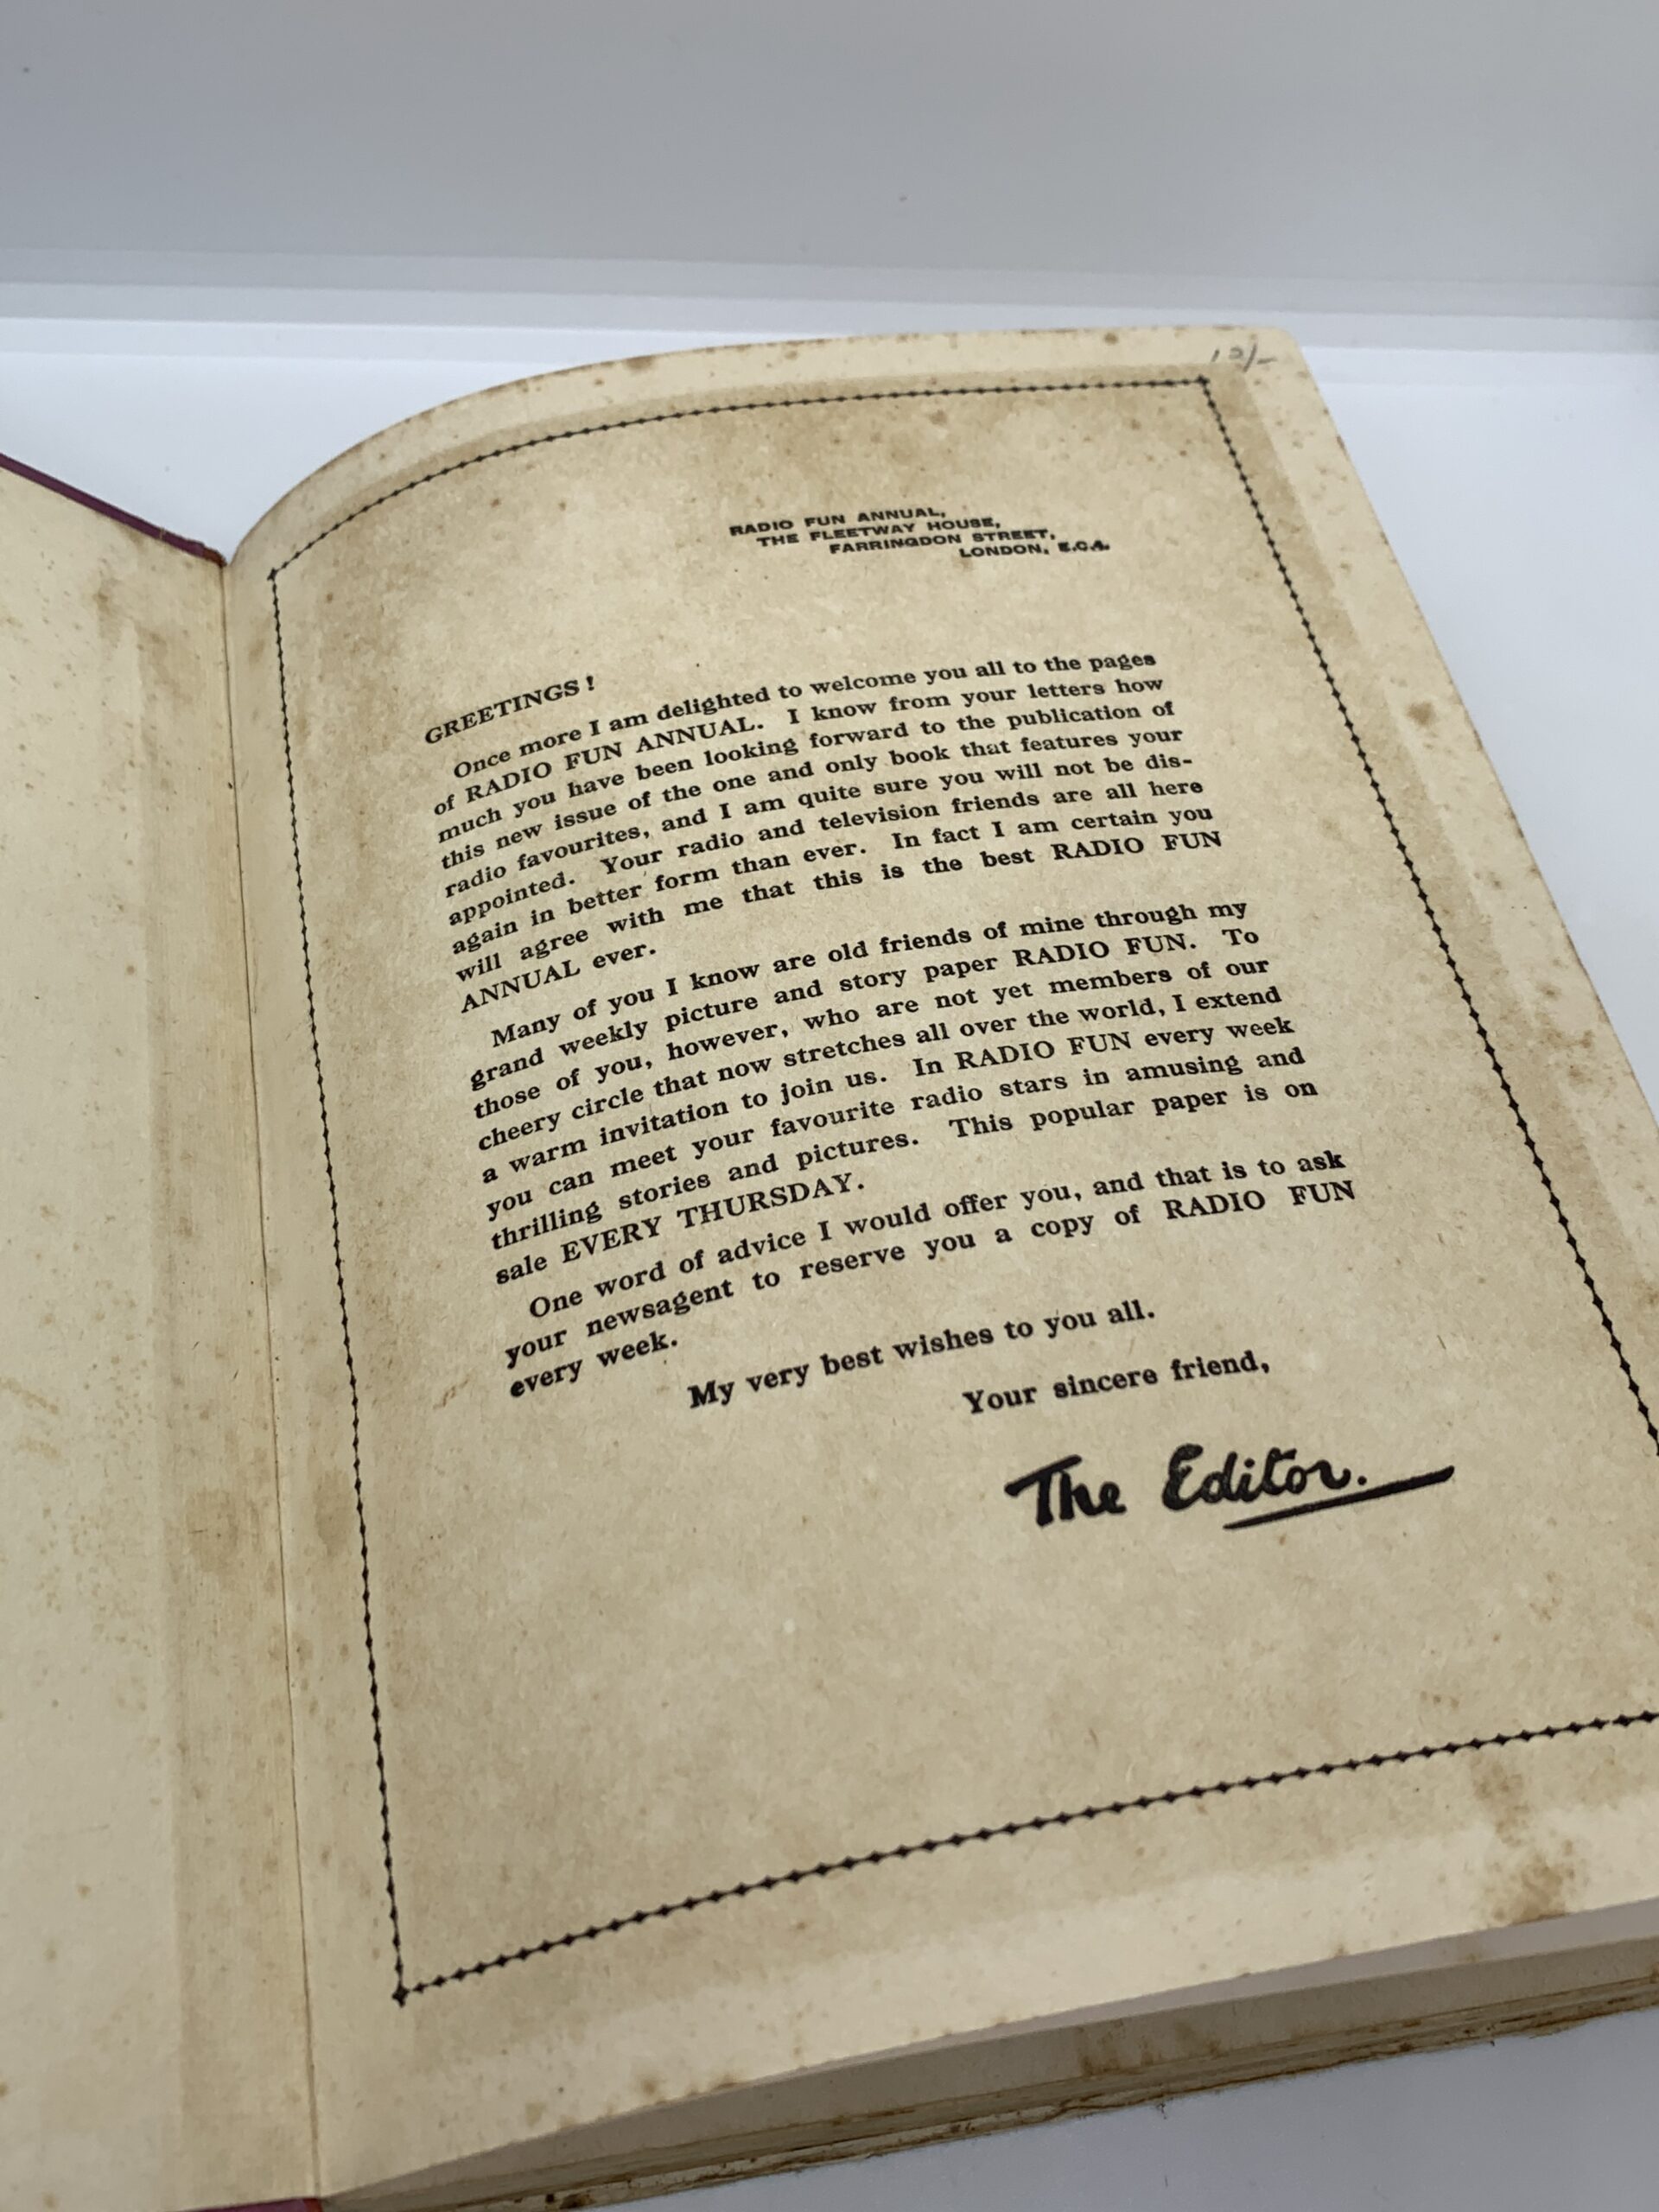 RADIO FUN ANNUAL,
THE FLEETWAY HOUSE,
FARRINGDON STREET,
LONDON, E.C.4.
GREETINGS !
Once more I am delighted to welcome you all to the pages
of RADIO FUN ANNUAL. I know from your letters how
much you have been looking forward to the publication of
this new issue of the one and only book that features your
radio favourites, and I am quite sure you will not be dis-
appointed. Your radio and television friends are all here
again in better form than ever. In fact I am certain you
will agree with me that this is the best RADIO FUN
ANNUAL ever.
Many of you I know are old friends of mine through my
grand weekly picture and story paper RADIO FUN. To
those of you, however, who are not yet members of our
cheery circle that now stretches all over the world, I extend
a warm invitation to join us. In RADIO FUN every week
you can meet your favourite radio stars in amusing and
thrilling stories and pictures. This popular paper is on
sale EVERY THURSDAY.
One word of advice I would offer you, and that is to ask
your newsagent to reserve you a copy of RADIO FUN
every week.
My very best wishes to you all.
Your sincere friend,
The Editor.